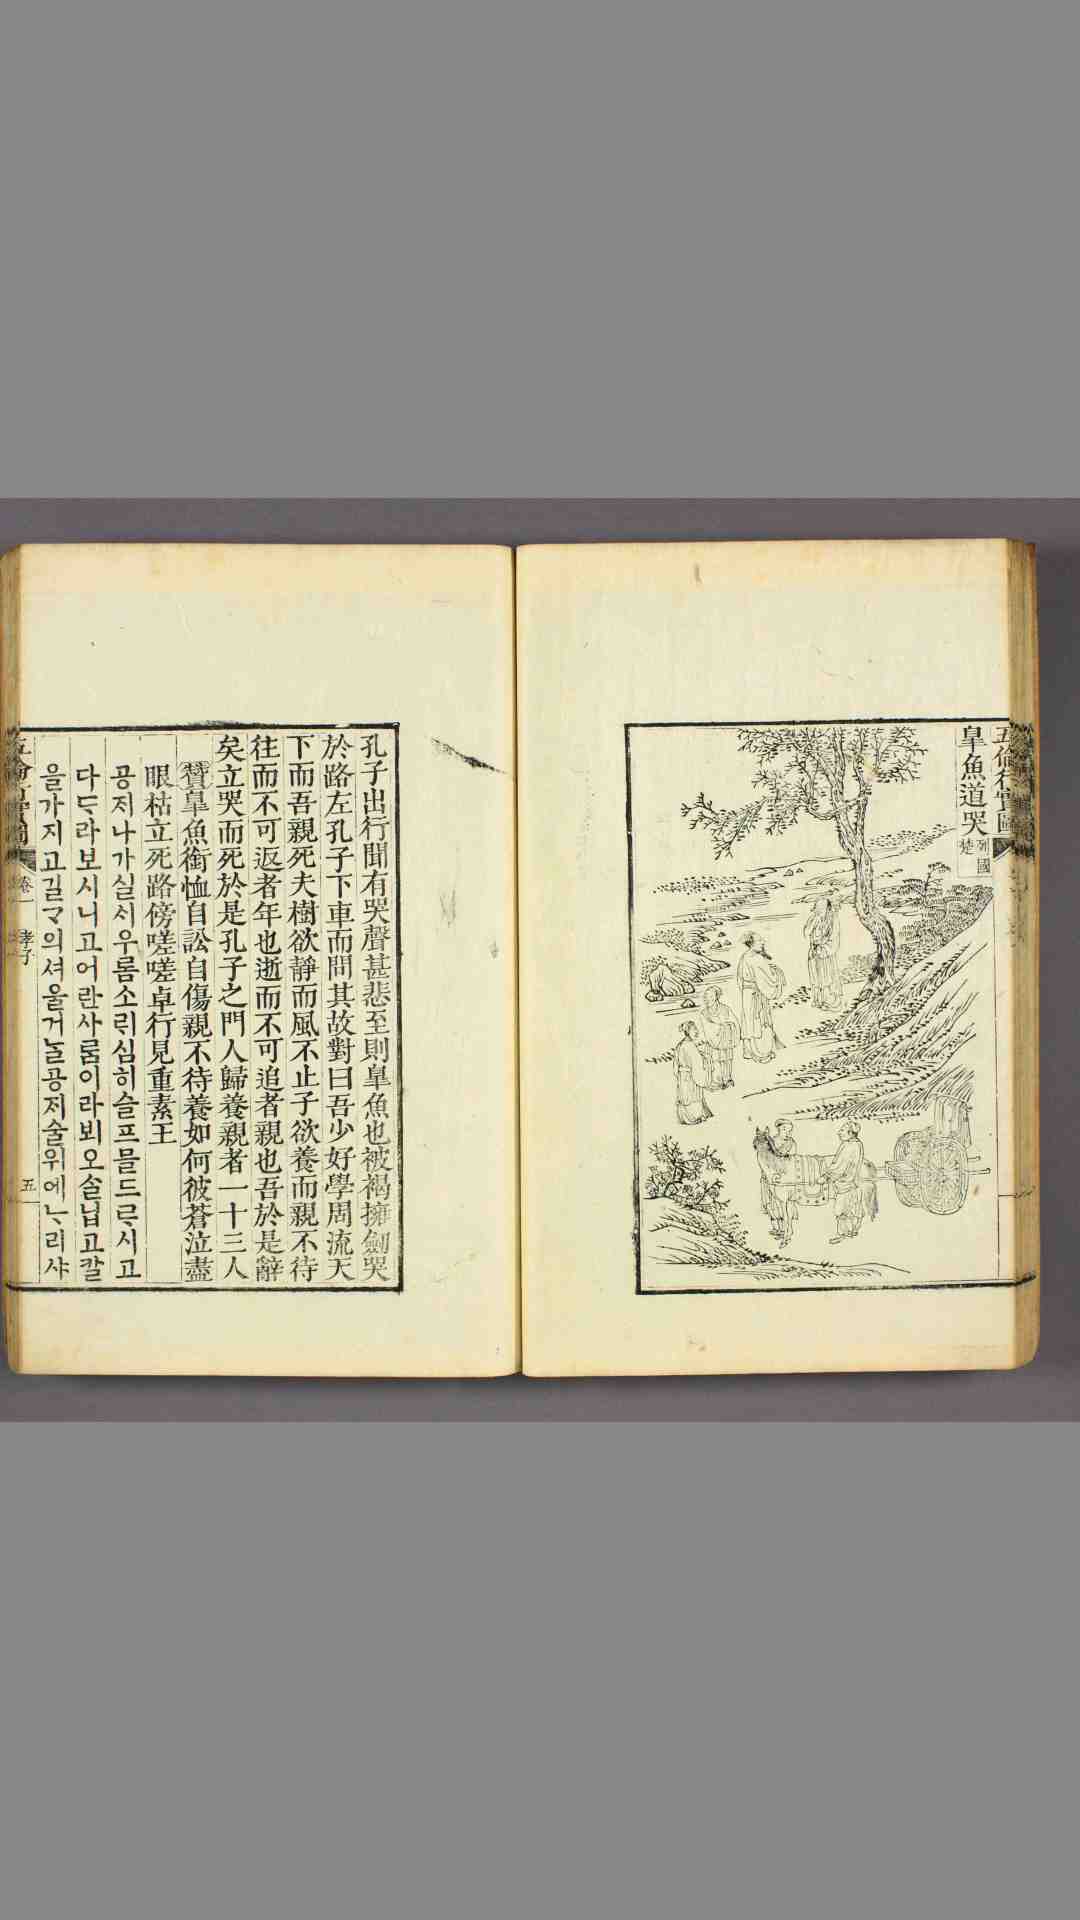 五倫行實圖
皐魚道哭
列國
楚
孔子出行聞有哭聲甚悲至則皐魚也被褐擁劒哭
於路左孔子下車而問其故對曰吾少好學周流天
下而吾親死夫樹欲靜而風不止子欲養而親不待
往而不可返者年也逝而不可追者親也吾於是辭
矣立哭而死於是孔子之門人歸養親者一十三人
贊皐魚銜恤自訟自傷親不待養如何彼蒼泣盡
眼枯立死路傍嗟嗟卓行見重素王
공ᄌᆡ나가실ᄉᆡ우롬소ᄅᆡ심히슬프믈드ᄅᆞ시고
다ᄃᆞ라보시니고어란사ᄅᆞᆷ이라뵈오슬닙고칼
을가지고길ᄀᆞ의셔울거ᄂᆞᆯ공ᄌᆡ술위에ᄂᆞ리샤
五倫行實圖
卷一
孝子
五